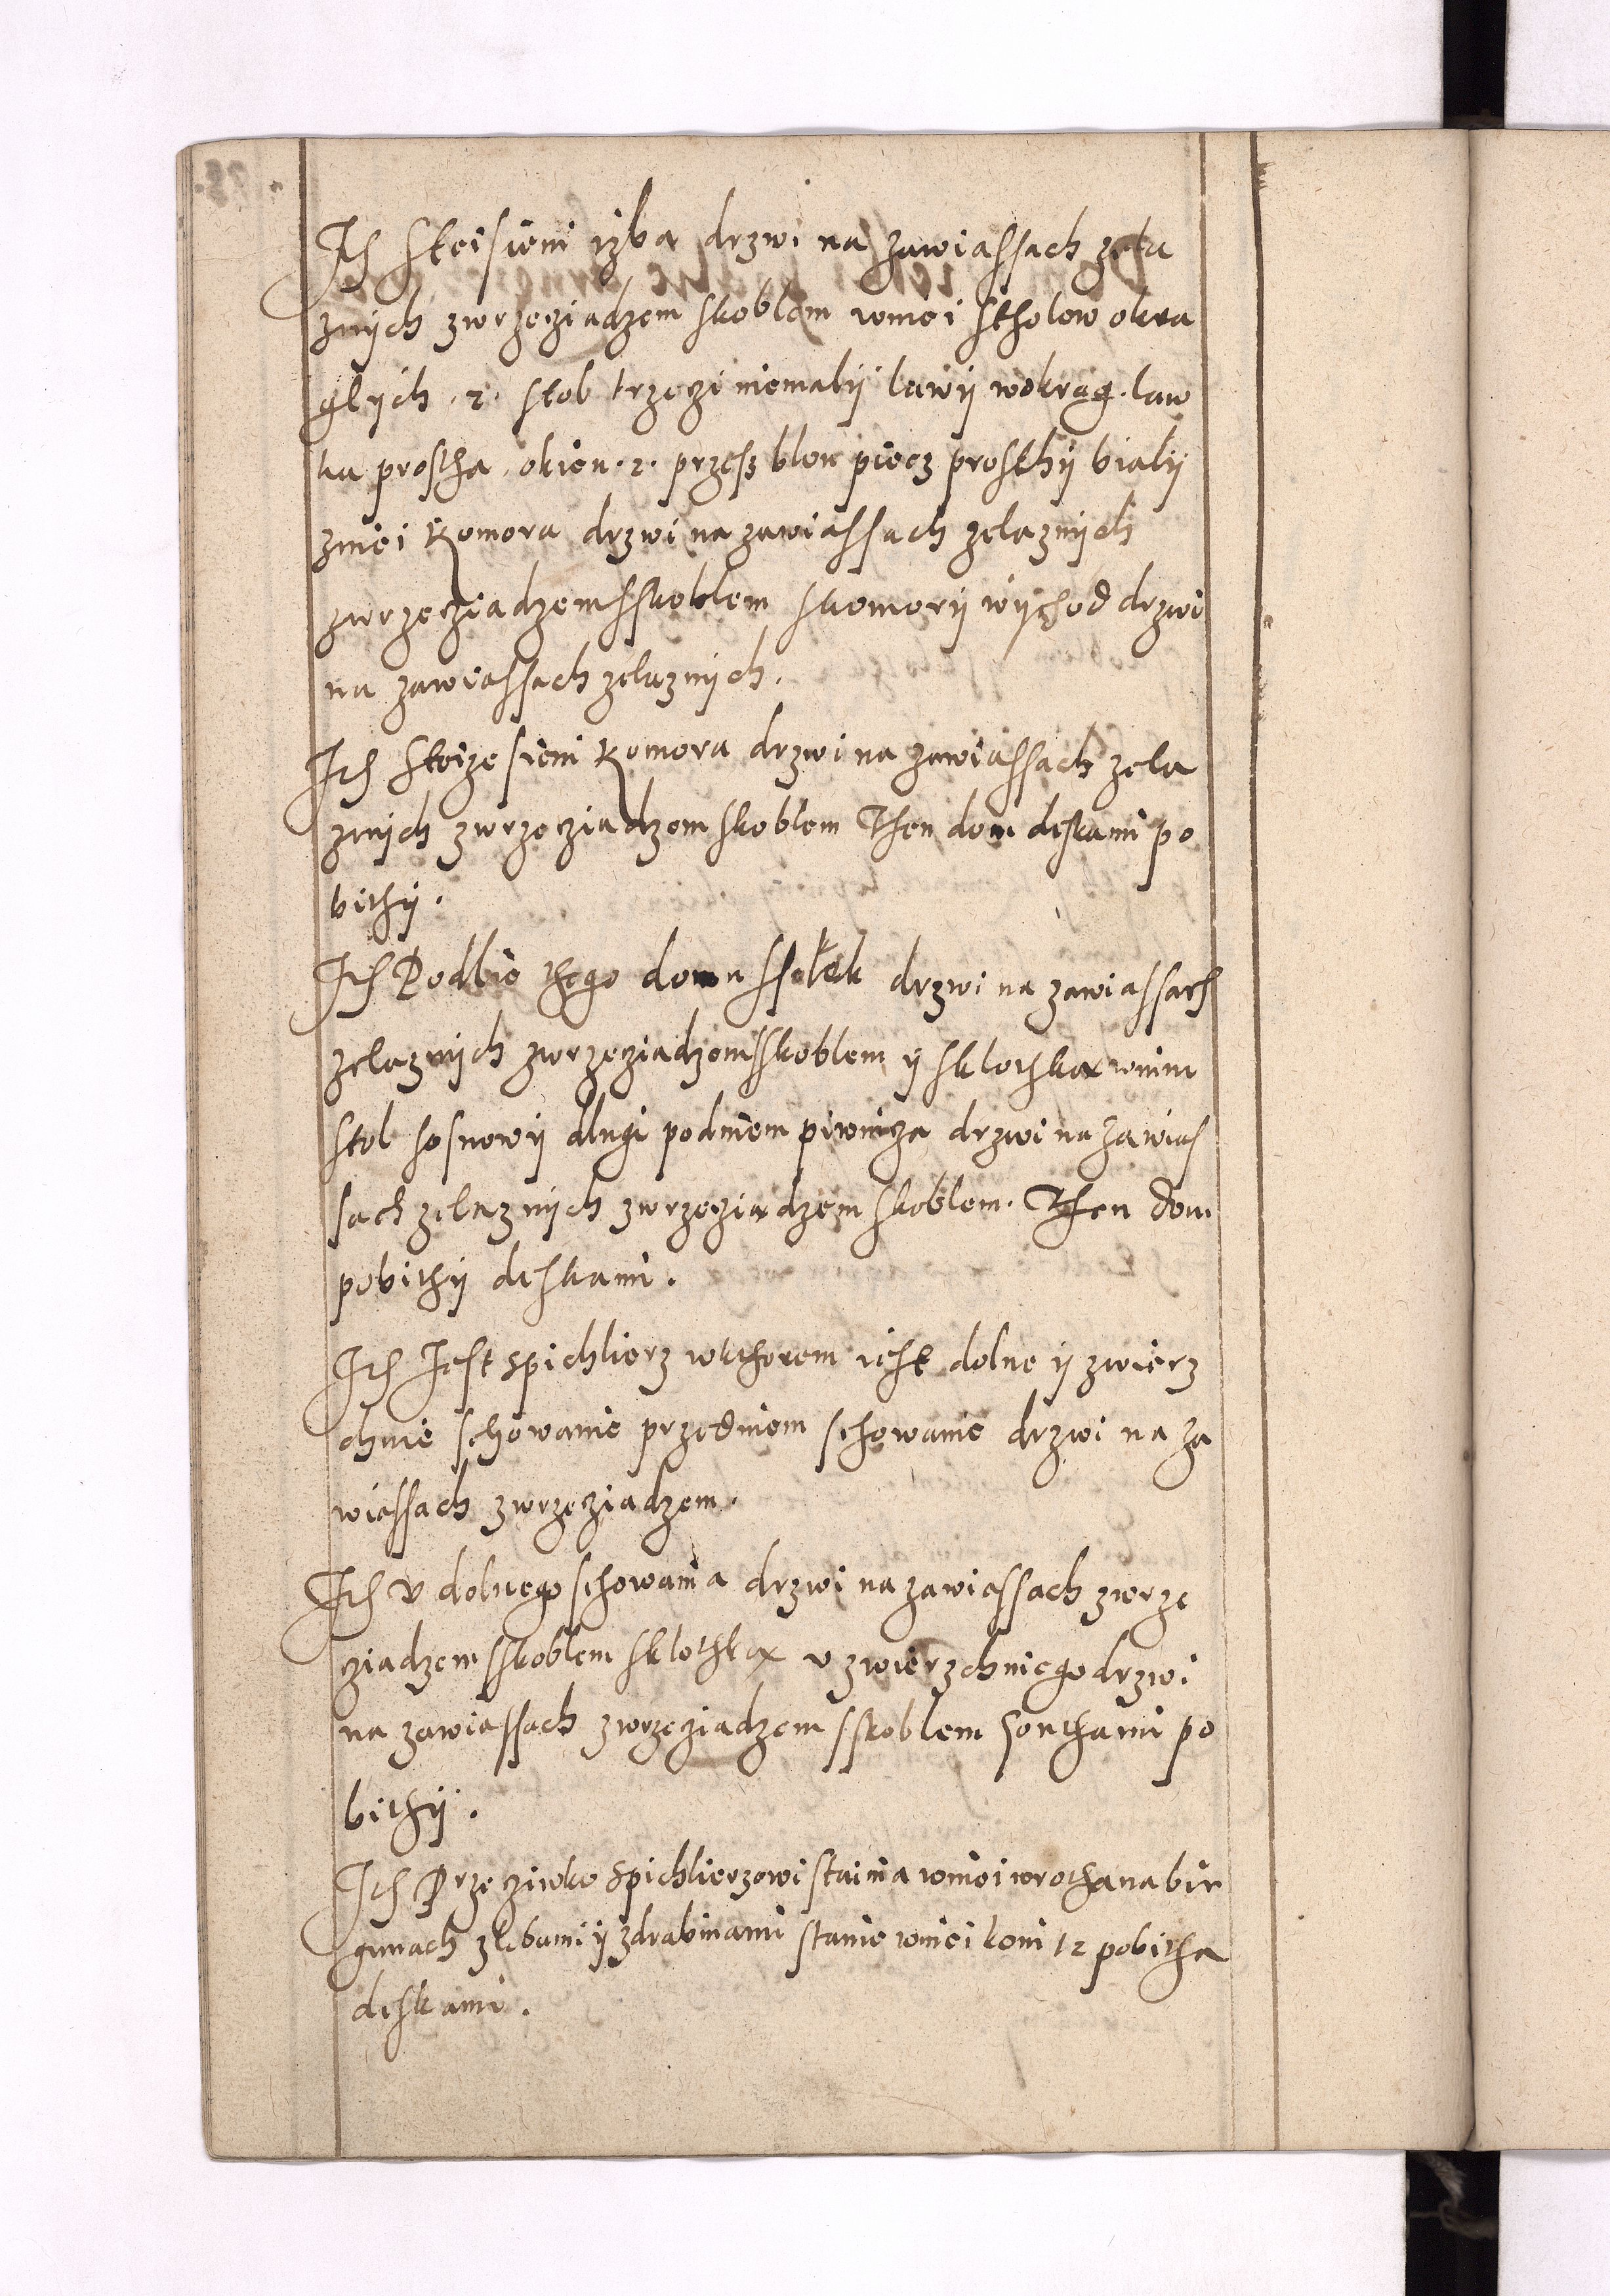 Ith Steisieni izba drzwi na zawiassach zela
znijch zwrzecziadzem skoblem wniei stholow okra
glijch .2. stol trzeczi niemalij lawij wokrąg. law
ka prostha okien .2. przesz blon piecz prosthij bialij
zniei Komora drzwi na zawiassach zelaznijch
zwrzecziadzem sskoblem skomorij wijchod drzwi
na zawiassach zelaznijch.
Ith Steize sieni Komora drzwi na zawiassach zela
znijch zwrzecziadzem skoblem Then dom deskami po
bithij.
Ith Podlie thego domu drzwi na zawiassach
zelaznijch zwrzecziadzem sskoblem ij sklothka wnim
stol sosnowij dlugi podniem piwnicza drzwi na zawias
sach zelaznijch zwrzecziadzem skoblem. Then dom
pobithij deskami.
Ith Jest spichlierz wkthorem iest dolne ij zwierz
chnie schowanie przedniem schowanie drzwi na za
wiassach zwrzecziadzem.
Ith v dolnego schowania drzwi na zawiassach zwrze
cziadzem sskoblem sklothka v zwierzchniego drzwi
na zawiassach zwrzecziadzem sskoblem gonthami po
bithij.
Ith Przecziwko spichlierzowi stainia wniei wrotha na bie
gunach zlobami ij zdrabinami stanie wniei koni 12 pobitha
deskami.